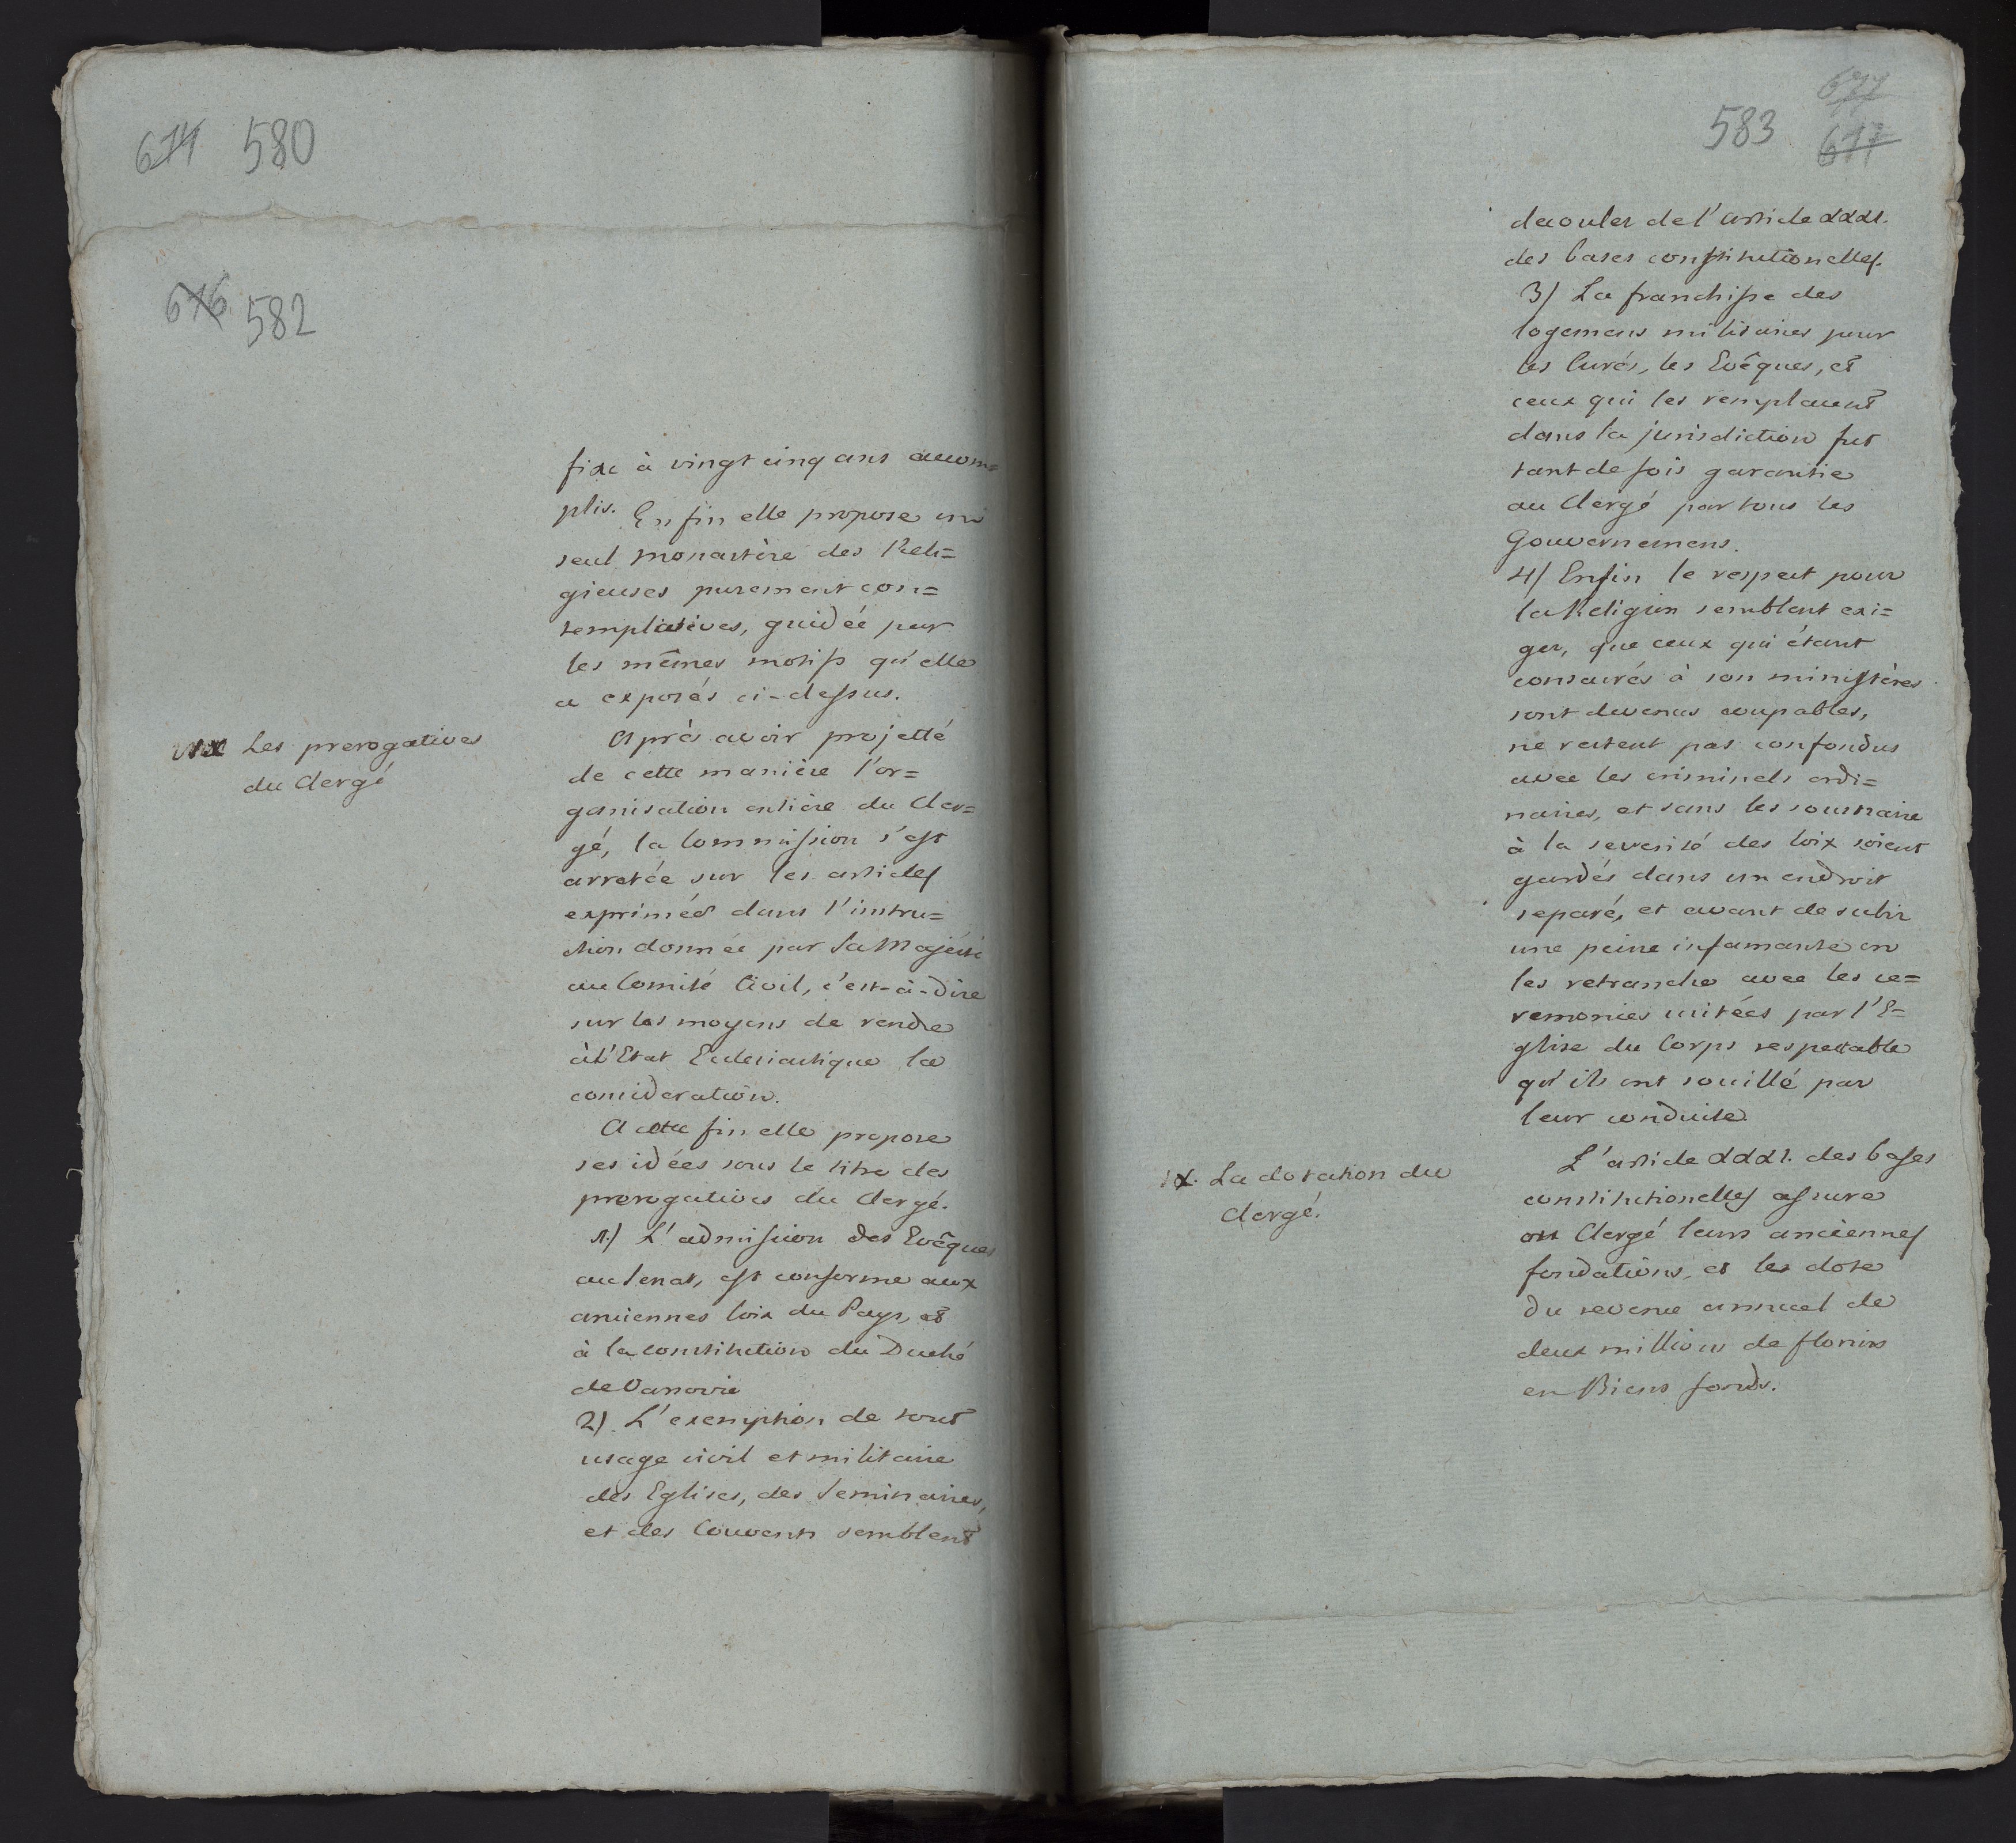 674 580
676. 582
fixe à vingt cinq ans accom=
plis. Enfin elle propose un
seul monastère des Reli=
gieuses purement con=
templatives, guidée par
les mêmes motifs qu'elle
a exposés ci-dessus.
VIII Les prerogatives
du Clergé
Après avoir projetté
de cette manière l'or=
ganisation entière du Cler=
gé, la Commission s'est
arretée sur les articles
exprimés dans l'instru=
ction donnée par Sa Majesté
au Comité Civil, c'est-à-dire
sur les moyens de rendre
à l'Etat Ecclesiastique la
consideration.
A cette fin elle propose
ses idées sous le titre des
prerogatives du Clergé.
1.) L'admission des Evêques
au Senat, est conforme aux
anciennes loix du Pays, et
à la constitution du Duché
de Varsovie
2). L'exemption de tout
usage civil et militaire
des Eglises, des Seminaires,
et des Couvents semblent
677
583 677
decouler de l'article XXXI.
des bases constitutionelles.
3) La franchise des
logemens militaires pour
les Curés, les Evêques, et
ceux qui les remplacent
dans la jurisdiction fut
tant de fois garantie
au Clergé par tous les
Gouvernemens.
4) Enfin le respect pour
la Religion semblent exi=
ger, que ceux qui étant
consacrés à son ministères
sont devenus coupables,
ne restent pas confondus
avec les criminels ordi=
naires, et sans les soustraire
à la severité des loix soient
gardés dans un endroit
separé, et avant de subir
une peine infamante on
les retranche avec les ce=
remonies usitées par l'E=
glise du Corps respectable
qu'ils ont souillé par
leur conduite.
IX. La dotation du
Clergé.
L'article XXXI. des bases
constitutionelles assure
au Clergé leurs anciennes
fondations, et les dote
du revenu annuel de
deux millions de florins
en Biens fonds.